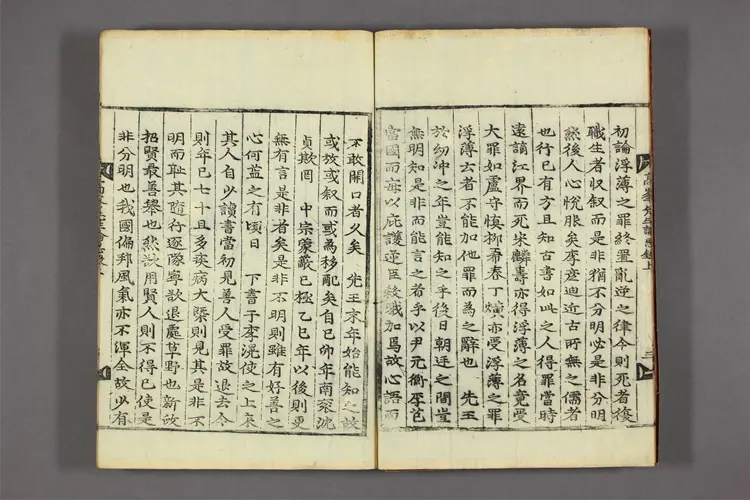 初論浮薄之罪終置亂逆之律今則死者復
職生者収叙而是非猶不分明必是非分明
然後人心悅服矣李彦迪近古所無之儒者
也行已有方且知古書如此之人得罪當時
遠謫江界而死宋麟壽亦得浮薄之名竟受
大罪如盧守愼柳希春丁熿亦受浮薄之罪
浮薄云者不能加他罪而為之辭也 先王
於幼沖之年豈能知之乎後日朝廷之間豈
無明知是非而能言之者乎以尹元衡李芑
當國而每以庇護逆臣殺戮加焉故心語而
不敢開口者久矣 先王末年始能知之故
或放或叙而或為移配矣自己卯年南衮沈
貞欺罔 中宗蒙蔽已極乙巳年以後則更
無有言是非者矣是非不明則雖有好善之
心何益之有頃日 下書于李滉使之上來
其人自少讀書當初見善人受罪故退去今
則年已七十且多疾病大槩則見其是非不
明而耻其隨行逐隊寧欲退處草野也新政
招賢最善擧也然欲用賢人則不得已使是
非分明也我國偏邦風氣亦不渾全故必有